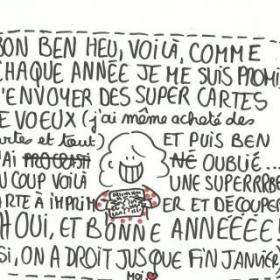 BON BEN HEU, VOILÀ, COMME
CHAQUE ANNÉE JE ME SUIS PROMI
'ENVOYER DES SUPER CARTES
E VOEUX (j'ai même acheté des
rtes et tout) ET PUIS BEN
'AI PROCRASTI NÉ OUBLIÉ...
U COUP VOILÀ UNE SUPERRRBE
ARTE À IMPRIMER ET DÉCOUPER
AH OUI, ET BONNE ANNÉEEEE!
SI, ON A DROIT JUSQUE FIN JANVIER
Moi